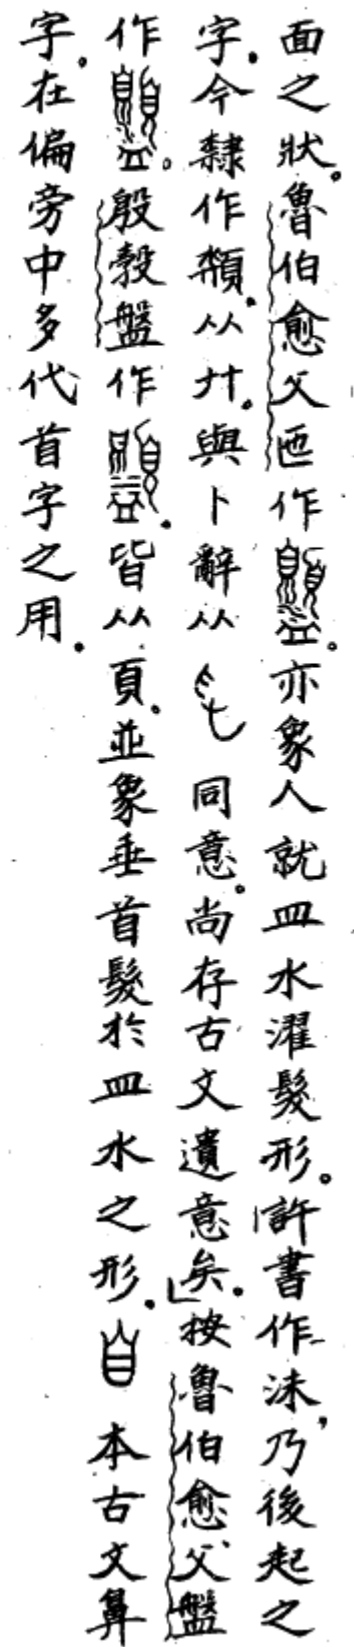 面之狀。魯伯愈父匜作。亦象人就皿水濯髮形。許書作沬，乃後起之
字。今隸作頮。从廾。與卜辭从同意。尚存古文遺意矣。」按魯伯愈父盤
作。殷穀盤作。皆从頁。並象垂首髮於皿水之形。本古文鼻
字。在偏旁中多代首字之用。